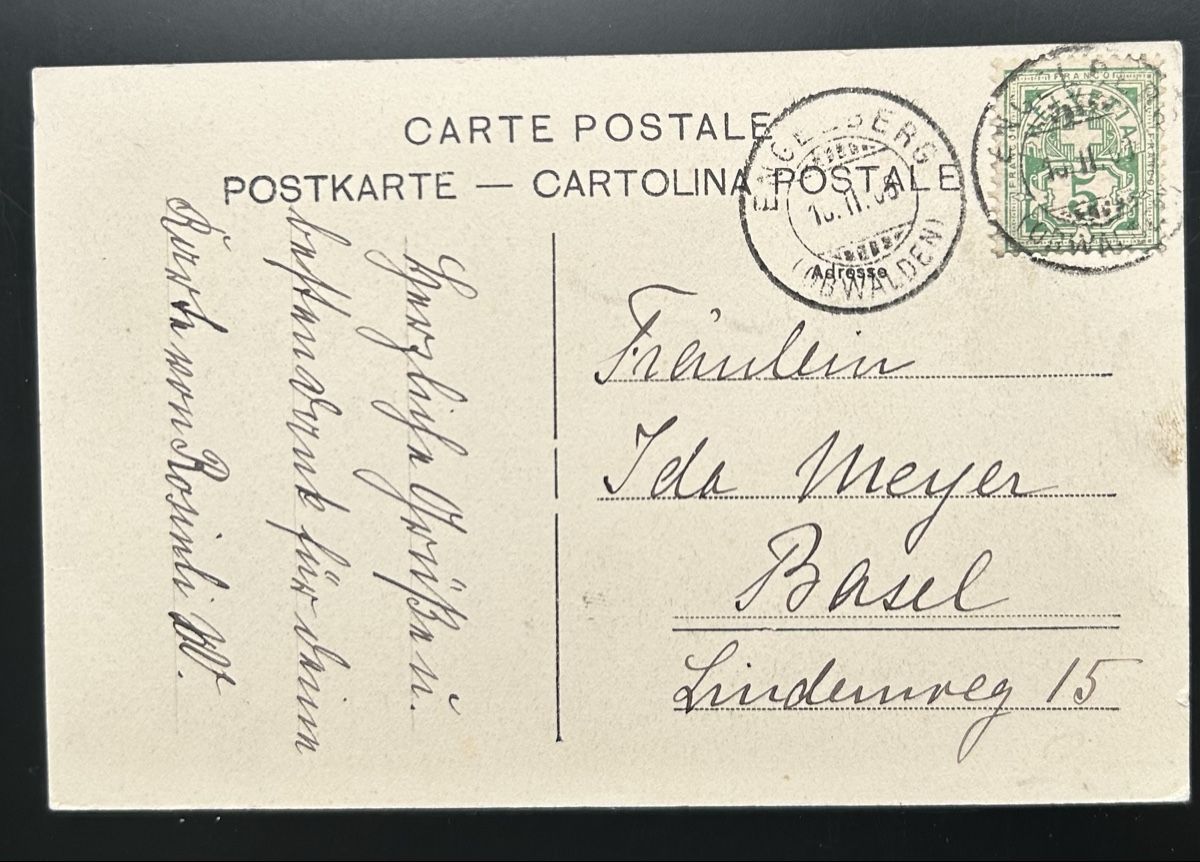 CARTE POSTALE
POSTKARTE — CARTOLINA POSTALE
ENGELBERG
II.
(OBWALDEN)
FRANCO
HELVETIA
5
Adresse
Fräulein
Ida Meyer
Basel
Lindenweg 15
Herzliche Grüße u.
besten Dank für deine
Karte von Rosinli W.